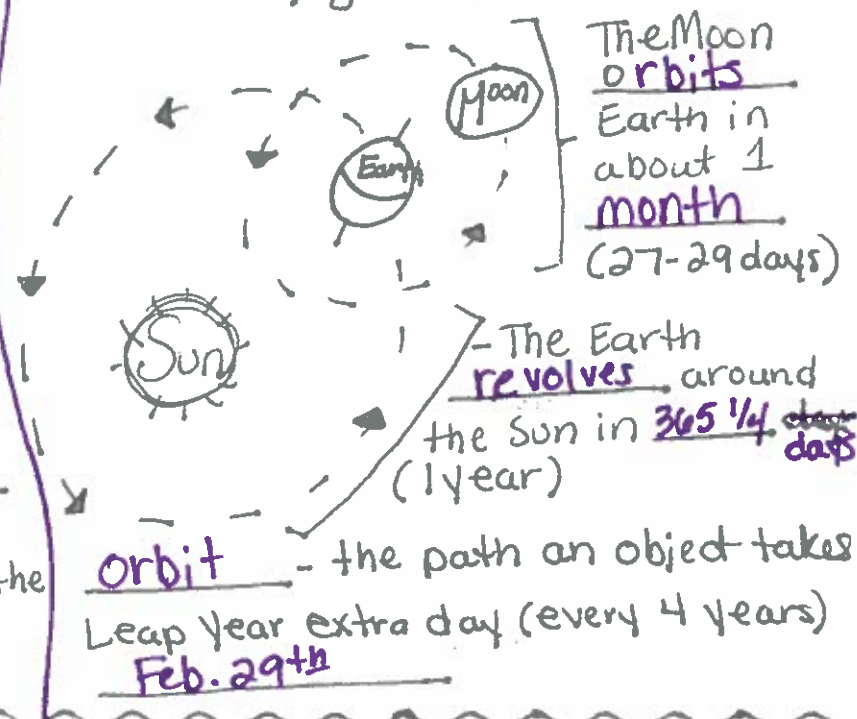 Moon
Earth
Sun
The Moon
orbits
Earth in
about 1
month
(27-29 days)
- The Earth
revolves around
the Sun in 365 1/4
days
(1 year)
the
orbit - the path an object takes
Leap Year extra day (every 4 years)
Feb. 29th